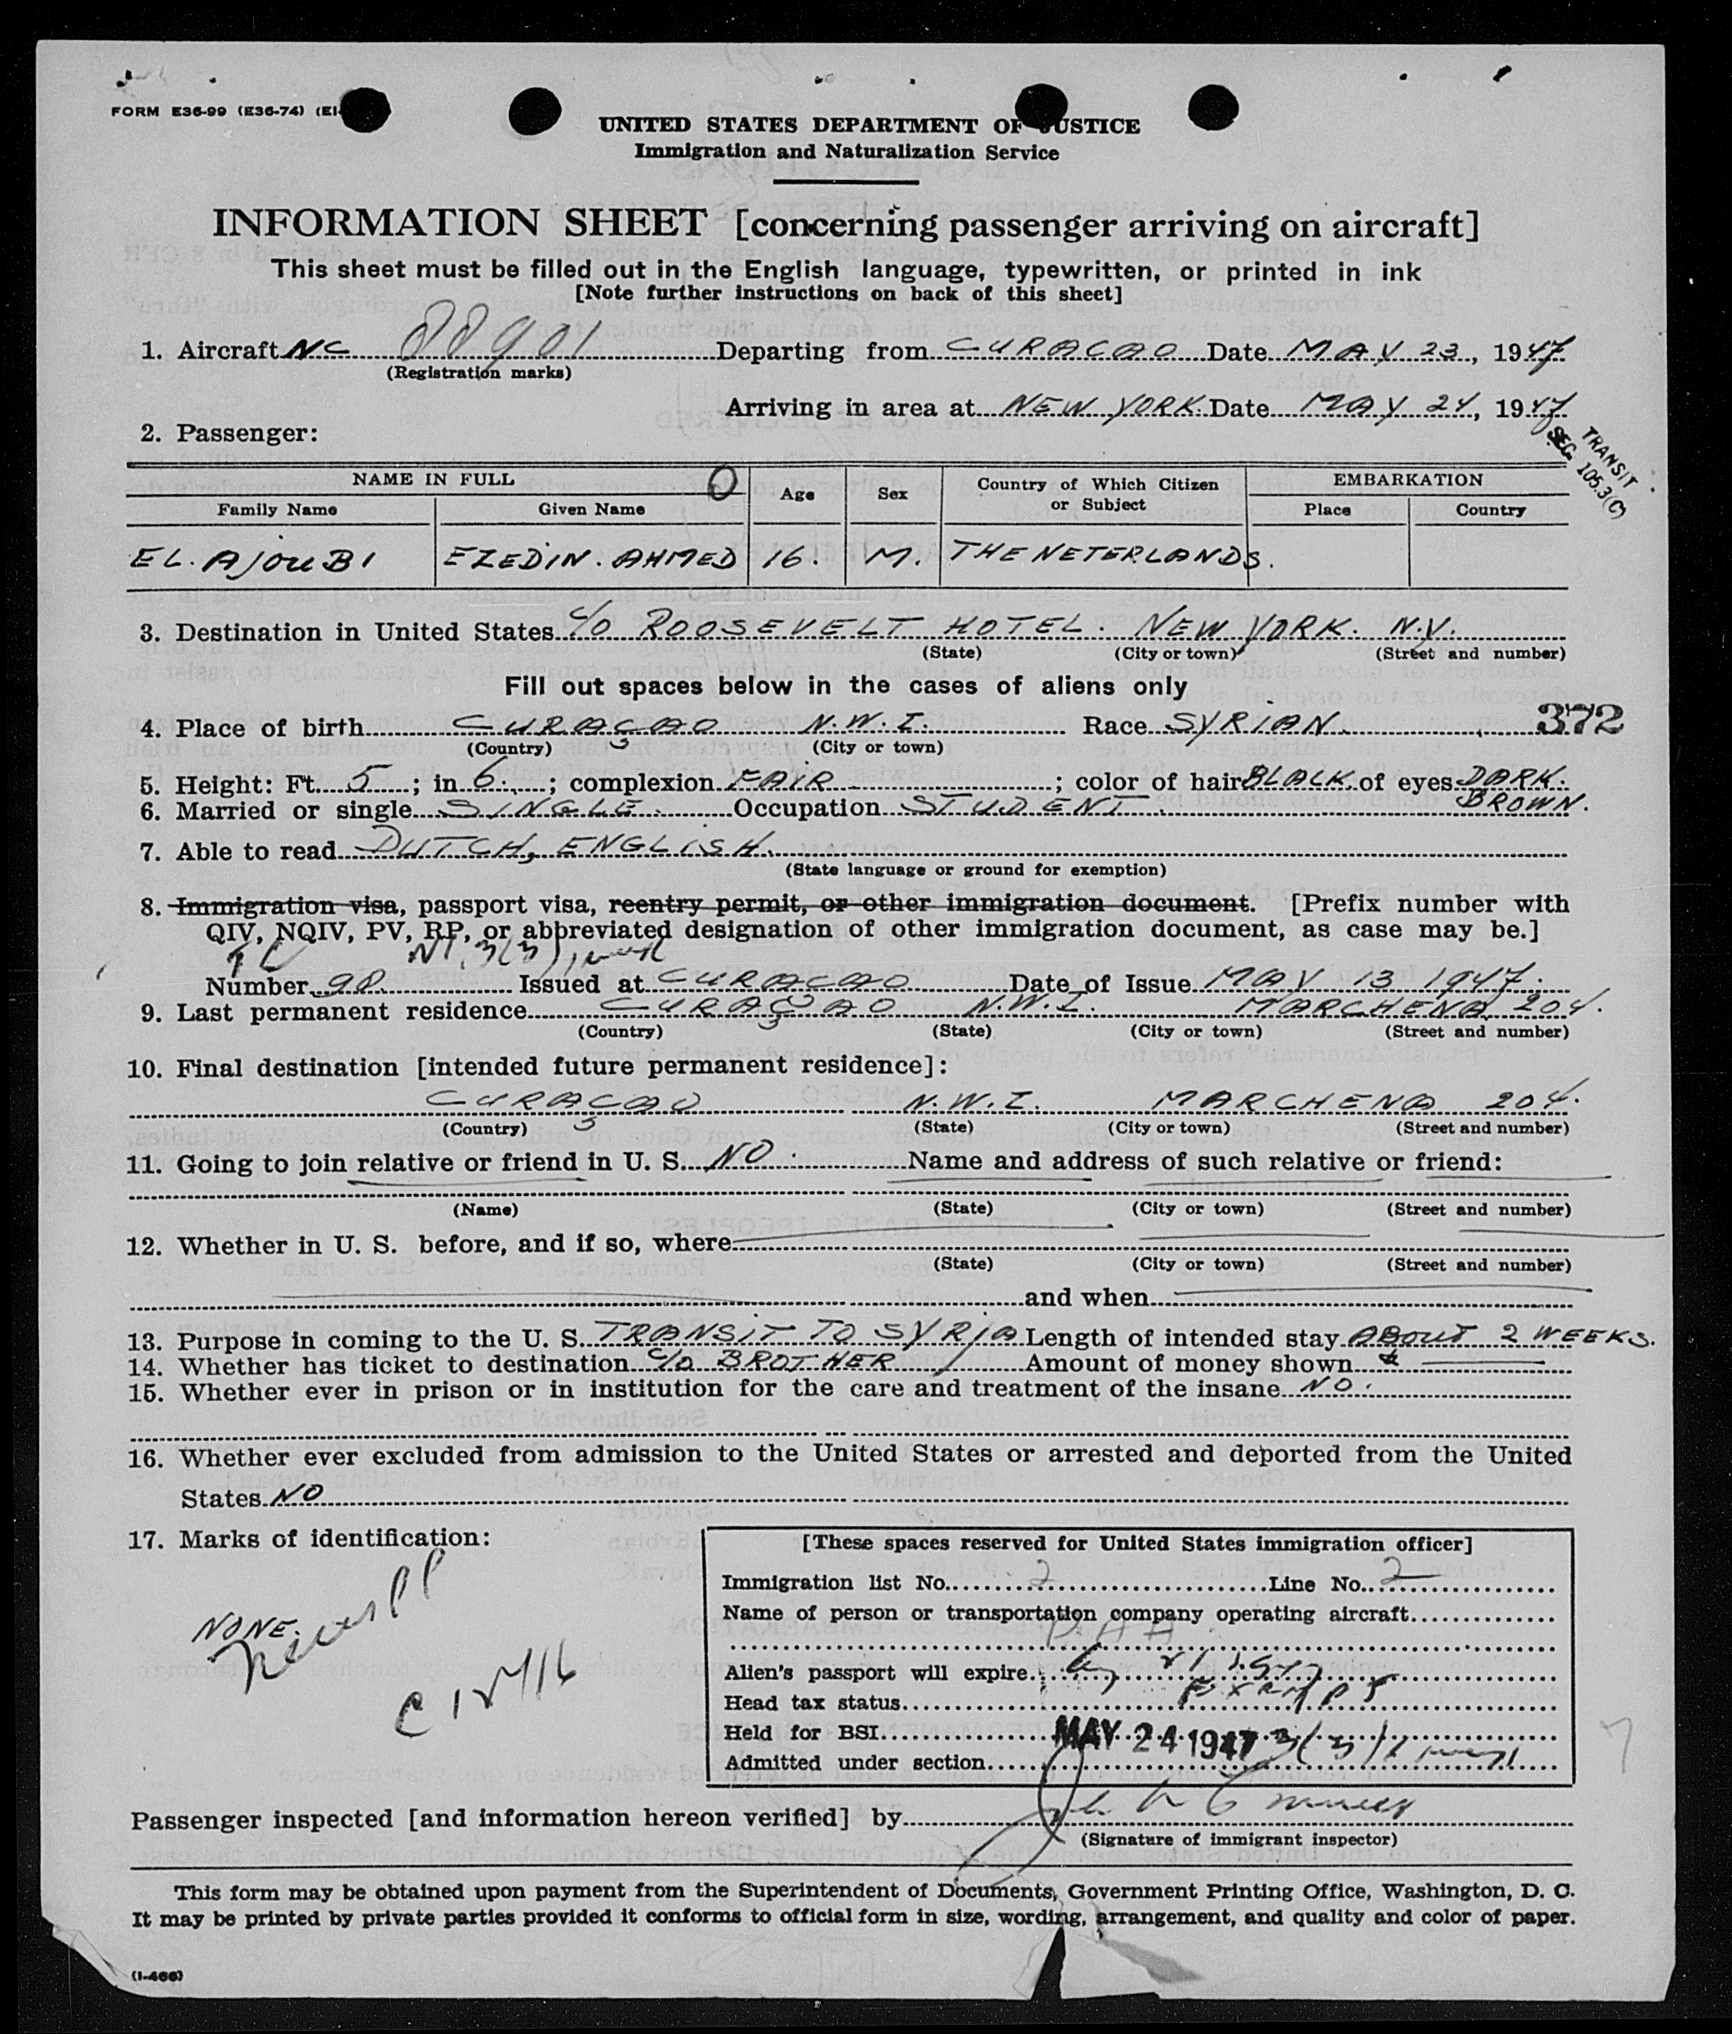 FORM E36-99 (E36-74) (EI-
UNITED STATES DEPARTMENT OF JUSTICE
Immigration and Naturalization Service
INFORMATION SHEET [concerning passenger arriving on aircraft]
This sheet must be filled out in the English language, typewritten, or printed in ink
[Note further instructions on back of this sheet]
1. Aircraft NC 88901 Departing from CURACAO Date MAY 23, 1947
(Registration marks)
Arriving in area at NEW YORK. Date MAY 24, 1947
TRANSIT
SEC. 105.3(C)
2. Passenger:
NAME IN FULL O Age Sex Country of Which Citizen or Subject EMBARKATION
Family Name Given Name Place Country
EL. AJOUBI EZEDIN. AHMED 16. M. THE NETERLANDS.
3. Destination in United States c/o ROOSEVELT HOTEL. NEW YORK. N.Y.
(State) (City or town) (Street and number)
Fill out spaces below in the cases of aliens only
4. Place of birth CURAÇAO N.W.I. Race SYRIAN. 372
(Country) (City or town)
5. Height: Ft. 5; in 6.; complexion FAIR; color of hair BLALK of eyes DARK.
BROWN.
6. Married or single SINGLE. Occupation STUDENT.
7. Able to read DUTCH, ENGLISH.
(State language or ground for exemption)
8. Immigration visa, passport visa, reentry permit, or other immigration document. [Prefix number with
QIV, NQIV, PV, RP, or abbreviated designation of other immigration document, as case may be.]
Number 98. Issued at CURACAO Date of Issue MAY 13 1947.
9. Last permanent residence CURAÇAO N.W.I. MARCHENA 204.
(Country) (State) (City or town) (Street and number)
10. Final destination [intended future permanent residence]:
CURAÇAO N.W.I. MARCHENA 204.
(Country) (State) (City or town) (Street and number)
11. Going to join relative or friend in U. S. NO. Name and address of such relative or friend:
(Name) (State) (City or town) (Street and number)
12. Whether in U. S. before, and if so, where
(State) (City or town) (Street and number)
and when
13. Purpose in coming to the U. S. TRANSIT TO SYRIA Length of intended stay ABOUT 2 WEEKS.
14. Whether has ticket to destination c/o BROTHER Amount of money shown
15. Whether ever in prison or in institution for the care and treatment of the insane NO.
16. Whether ever excluded from admission to the United States or arrested and deported from the United
States NO
17. Marks of identification:
NONE.
[These spaces reserved for United States immigration officer]
Immigration list No. 2 Line No. 2
Name of person or transportation company operating aircraft
PAA
Alien's passport will expire
Head tax status EXEMPT
Held for BSI
Admitted under section MAY 24 1947 3(3)
Passenger inspected [and information hereon verified] by
(Signature of immigrant inspector)
This form may be obtained upon payment from the Superintendent of Documents, Government Printing Office, Washington, D. C.
It may be printed by private parties provided it conforms to official form in size, wording, arrangement, and quality and color of paper.
(I-466)